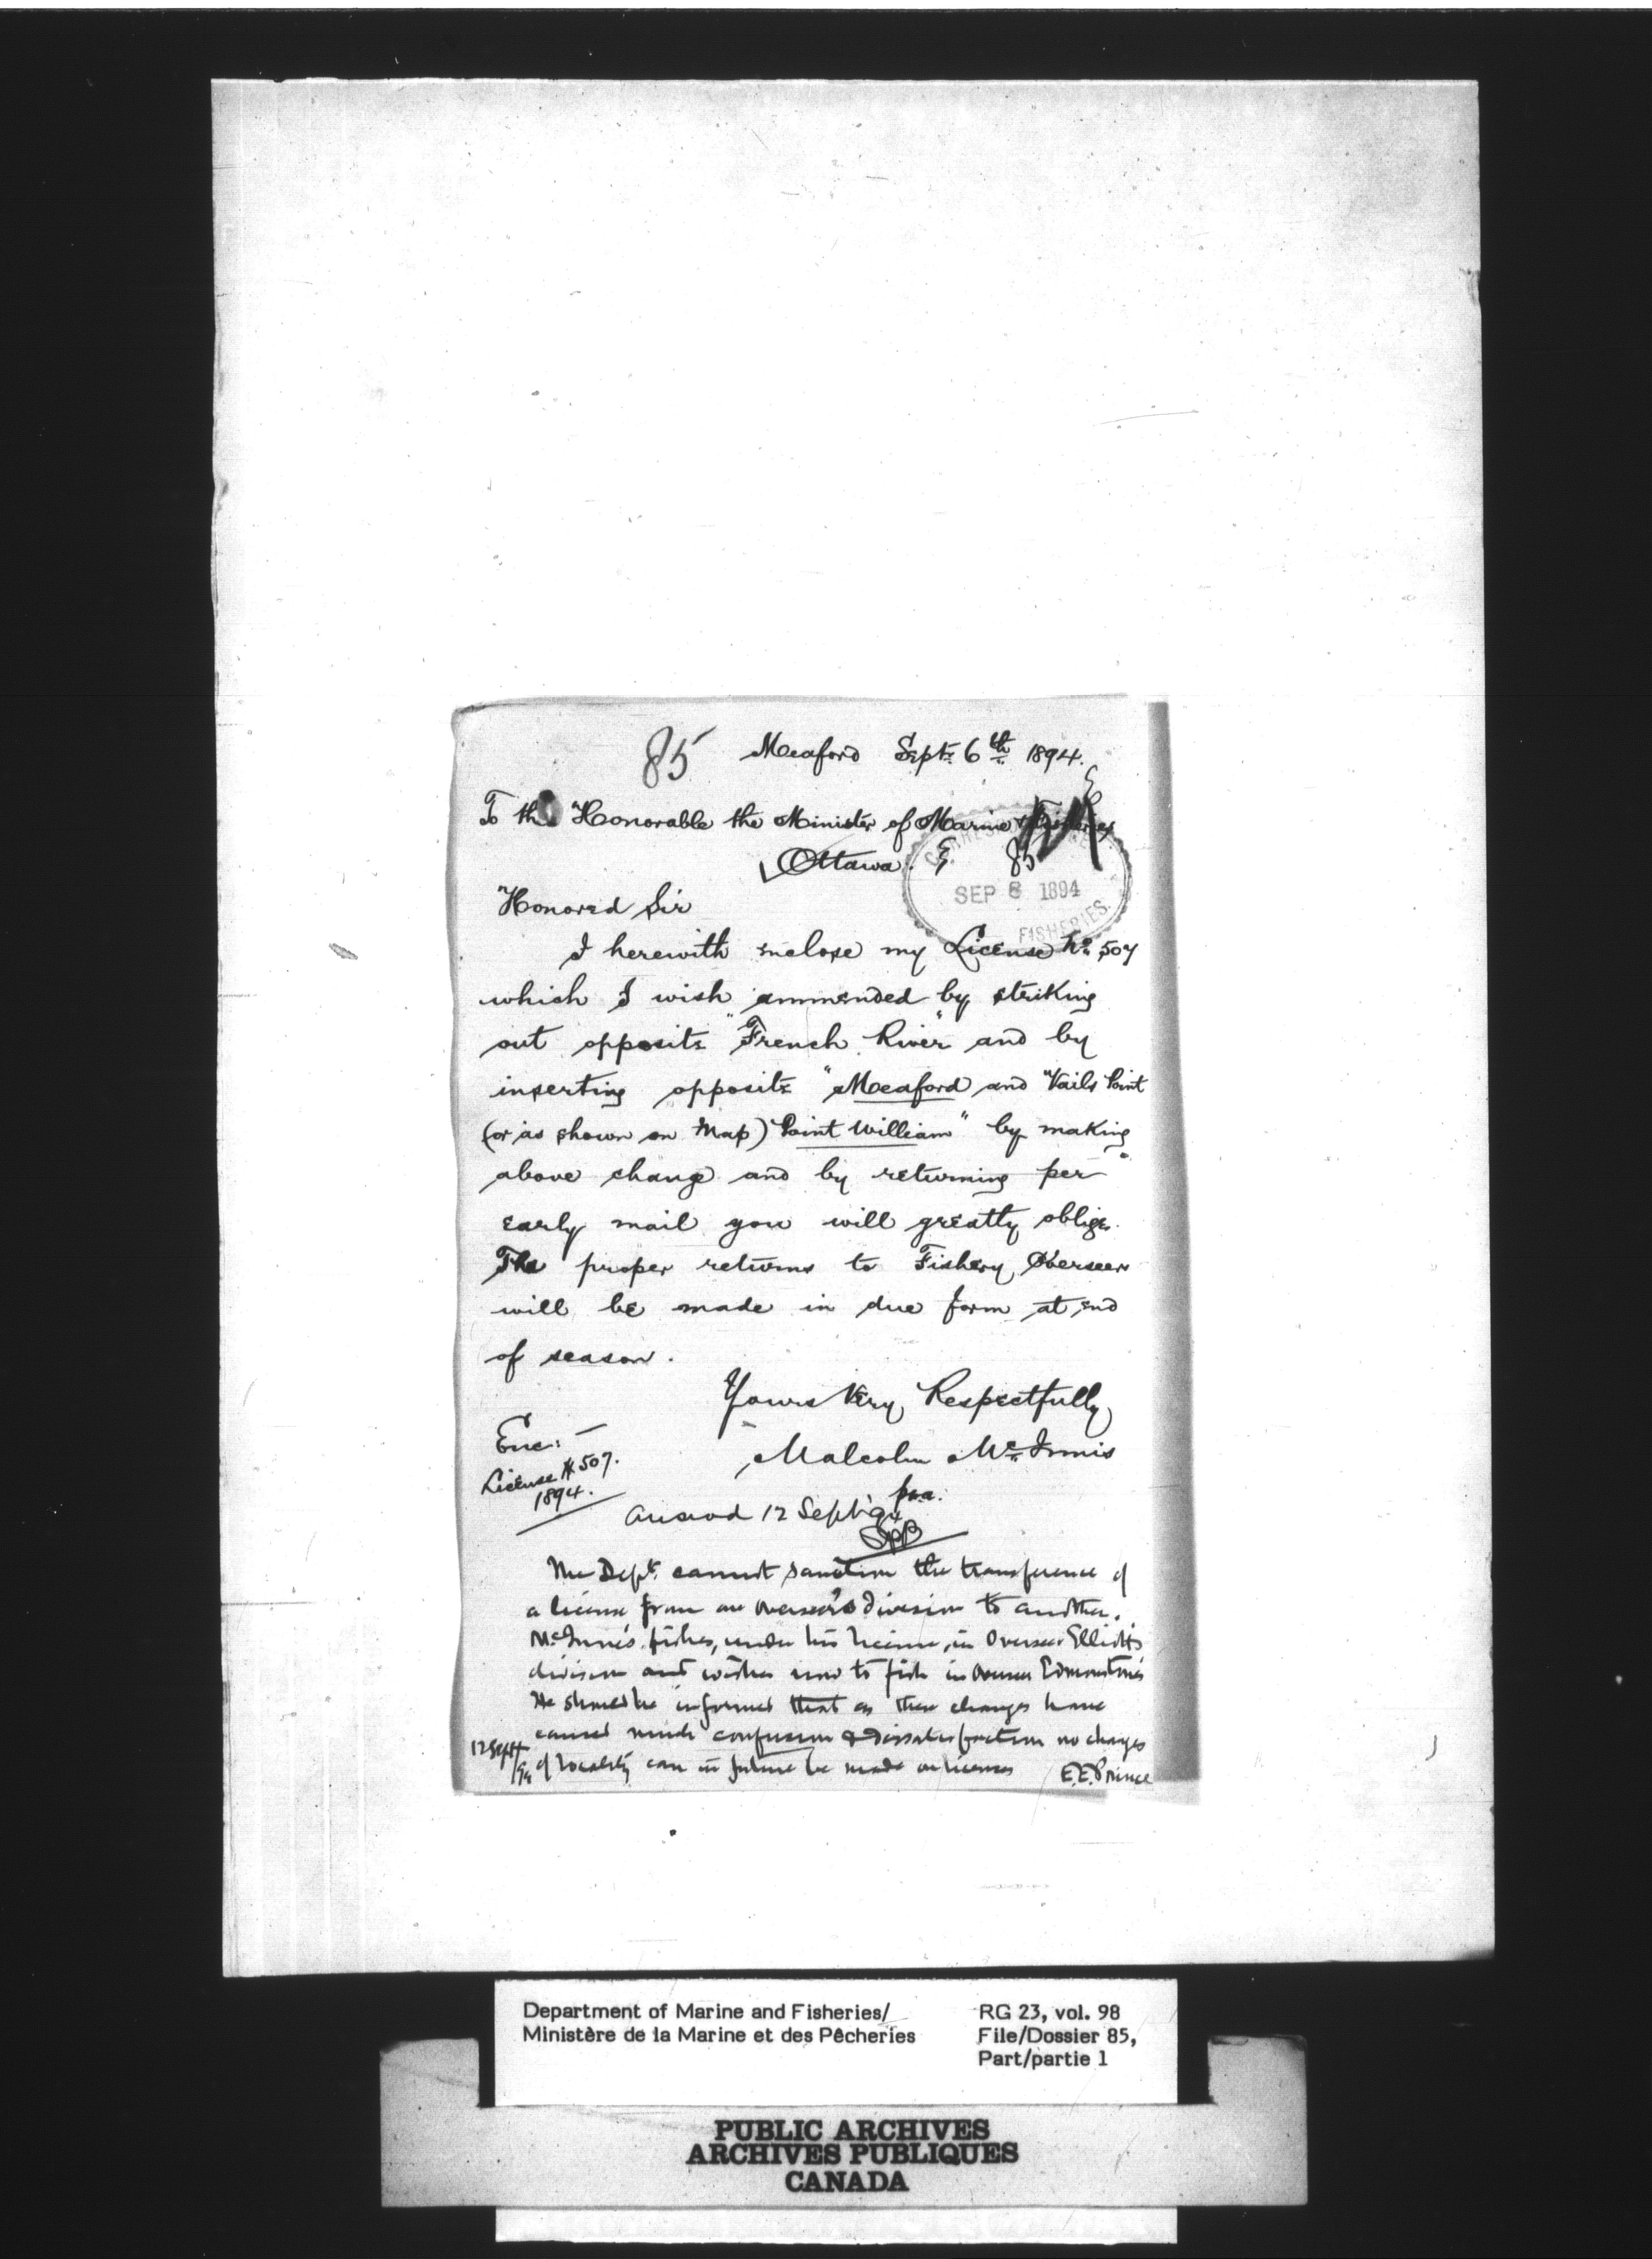 85 Meaford Sept. 6th 1894.
To the Honorable the Minister of Marine & Fisheries
Ottawa.
85
SEP 8 1894
FISHERIES.
Honored Sir
I herewith enclose my License No. 507
which I wish ammended by striking
out opposite "French River" and by
inserting opposite "Meaford and "Vails Point
(or as shown on Map) Point William" by making
above change and by returning per
early mail you will greatly oblige.
The proper returns to Fishery Overseer
will be made in due form at end
of season.
Yours Very Respectfully
Malcolm McInnis
Enc: —
License # 507.
1894.
Answd 12 Sept '94
The Dept. cannot sanction the transference of
a license from one overseer's division to another.
McInnis fishes, under his license, in Overseer Elliott's
division and wishes now to fish in Overseer Edmonstone's
He should be informed that as these changes have
caused much confusion & dissatisfaction no changes
of locality can in future be made on licenses
12 Sept /94
E.E. Prince
Department of Marine and Fisheries/
Ministère de la Marine et des Pêcheries
RG 23, vol. 98
File/Dossier 85,
Part/partie 1
PUBLIC ARCHIVES
ARCHIVES PUBLIQUES
CANADA